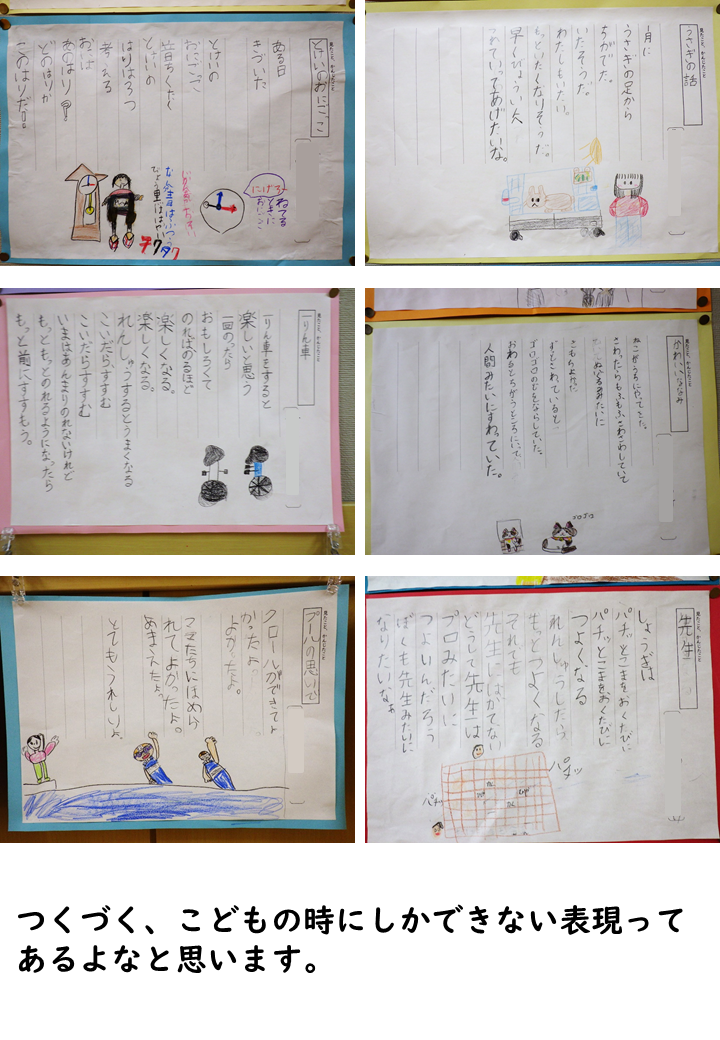 見たこと、かんじたこと
とけいのおにごっこ
ある日
きづいた
とけいの
おにごっこ
はりは3つ
考える
おには
あのはり
どのはりか
このはりだ!!
にげろ
まてる
ときに
おにごっこ
チクタク
見たこと、かんじたこと
うさぎの話
一月に
うさぎの足から
ちがでた。
いたそうだ。
わたしもいたい。
もっといたくなりそうだ。
早くびょういんへ
つれていってあげたいな。
見たこと、かんじたこと
一りん車
一りん車をすると
楽しいと思う
一回のったら
おもしろくて
のればのるほど
楽しくなる。
楽しくなる。
れんしゅうするとうまくなる
こいだらすすむ
こいだらすすむ
いまはあんまりのれないけれど
もっともっとのれるようになったら
もっと前にすすもう。
見たこと、かんじたこと
かわいいななみ
ねこがうちにやってきた。
さわったらもふもふふわふわしていて
ぬいぐるみみたいに
ずっとさわっていると
ゴロゴロのどをならしていた。
人間みたいにすわっていた。
ゴロゴロ
見たこと、かんじたこと
プールの思いで
クロールができてよ
かったよ。
よかったよ。
ママたちにほめら
れてよかったよ。
あまえたよ。
とてもうれしいよ。
見たこと、かんじたこと
先生
しょうぎは
パチッとこまをおくたびに
パチッとこまをおくたびに
つよくなる
れんしゅうしたら
もっとつよくなる
それでも
先生にはかてない
どうして先生は
プロみたいに
つよいんだろう
ぼくも先生みたいに
なりたいなぁ
パチッ
パチッ
つくづく、こどもの時にしかできない表現って
あるよなと思います。